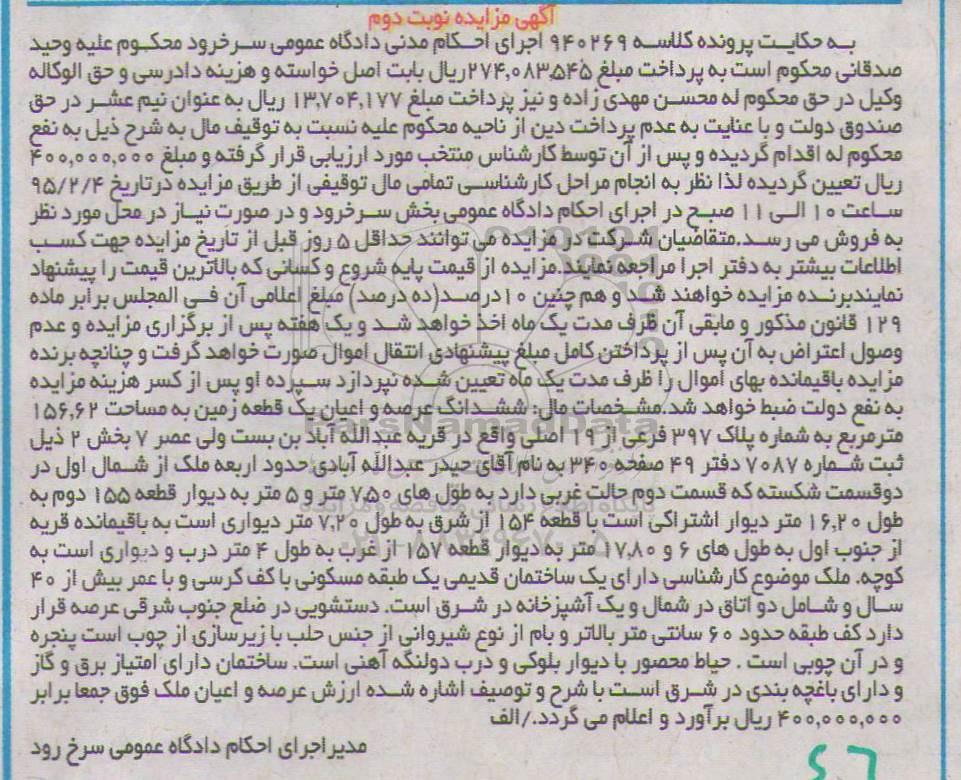 آگهی مزایده نوبت دوم
به حکایت پرونده کلاسه ۹۴۰۲۶۹ اجرای احکام مدنی دادگاه عمومی سرخرود محکوم علیه وحید
صدقانی محکوم است به پرداخت مبلغ ۲۷۴,۰۸۳,۵۴۵ریال بابت اصل خواسته و هزینه دادرسی و حق الوکاله
وکیل در حق محکوم له محسن مهدی زاده و نیز پرداخت مبلغ ۱۳,۷۰۴,۱۷۷ ریال به عنوان نیم عشر در حق
صندوق دولت و با عنایت به عدم پرداخت دین از ناحیه محکوم علیه نسبت به توقیف مال به شرح ذیل به نفع
محکوم له اقدام گردیده و پس از آن توسط کارشناس منتخب مورد ارزیابی قرار گرفته و مبلغ ۴۰۰,۰۰۰,۰۰۰
ریال تعیین گردیده لذا نظر به انجام مراحل کارشناسی تمامی مال توقیفی از طریق مزایده درتاریخ ۹۵/۲/۴
ساعت ۱۰ الی ۱۱ صبح در اجرای احکام دادگاه عمومی بخش سرخرود و در صورت نیاز در محل مورد نظر
به فروش می رسد.متقاضیان شرکت در مزایده می توانند حداقل ۵ روز قبل از تاریخ مزایده جهت کسب
اطلاعات بیشتر به دفتر اجرا مراجعه نمایند.مزایده از قیمت پایه شروع و کسانی که بالاترین قیمت را پیشنهاد
نمایندبرنده مزایده خواهند شد و هم چنین ۱۰درصد(ده درصد) مبلغ اعلامی آن فی المجلس برابر ماده
۱۲۹ قانون مذکور و مابقی آن ظرف مدت یک ماه اخذ خواهد شد و یک هفته پس از برگزاری مزایده و عدم
وصول اعتراض به آن پس از پرداختن کامل مبلغ پیشنهادی انتقال اموال صورت خواهد گرفت و چنانچه برنده
مزایده باقیمانده بهای اموال را ظرف مدت یک ماه تعیین شده نپردازد سپرده او پس از کسر هزینه مزایده
به نفع دولت ضبط خواهد شد.مشخصات مال: ششدانگ عرصه و اعیان یک قطعه زمین به مساحت ۱۵۶,۶۲
مترمربع به شماره پلاک ۳۹۷ فرعی از ۱۹ اصلی واقع در قریه عبدالله آباد بن بست ولی عصر ۷ بخش ۲ ذیل
ثبت شماره ۷۰۸۷ دفتر ۴۹ صفحه ۳۴۰ به نام آقای حیدر عبدالله آبادی حدود اربعه ملک از شمال اول در
دوقسمت شکسته که قسمت دوم حالت غربی دارد به طول های ۷,۵۰ متر و ۵ متر به دیوار قطعه ۱۵۵ دوم به
طول ۱۶,۲۰ متر دیوار اشتراکی است با قطعه ۱۵۴ از شرق به طول ۷,۲۰ متر دیواری است به باقیمانده قریه
از جنوب اول به طول های ۶ و ۱۷,۸۰ متر به دیوار قطعه ۱۵۷ از غرب به طول ۴ متر درب و دیواری است به
کوچه. ملک موضوع کارشناسی دارای یک ساختمان قدیمی یک طبقه مسکونی با کف کرسی و با عمر بیش از ۴۰
سال و شامل دو اتاق در شمال و یک آشپزخانه در شرق است. دستشویی در ضلع جنوب شرقی عرصه قرار
دارد کف طبقه حدود ۶۰ سانتی متر بالاتر و بام از نوع شیروانی از جنس حلب با زیرسازی از چوب است پنجره
و در آن چوبی است . حیاط محصور با دیوار بلوکی و درب دولنگه آهنی است. ساختمان دارای امتیاز برق و گاز
و دارای باغچه بندی در شرق است با شرح و توصیف اشاره شده ارزش عرصه و اعیان ملک فوق جمعا برابر
۴۰۰,۰۰۰,۰۰۰ ریال برآورد و اعلام می گردد./الف
مدیراجرای احکام دادگاه عمومی سرخ رود
ParsNamadData